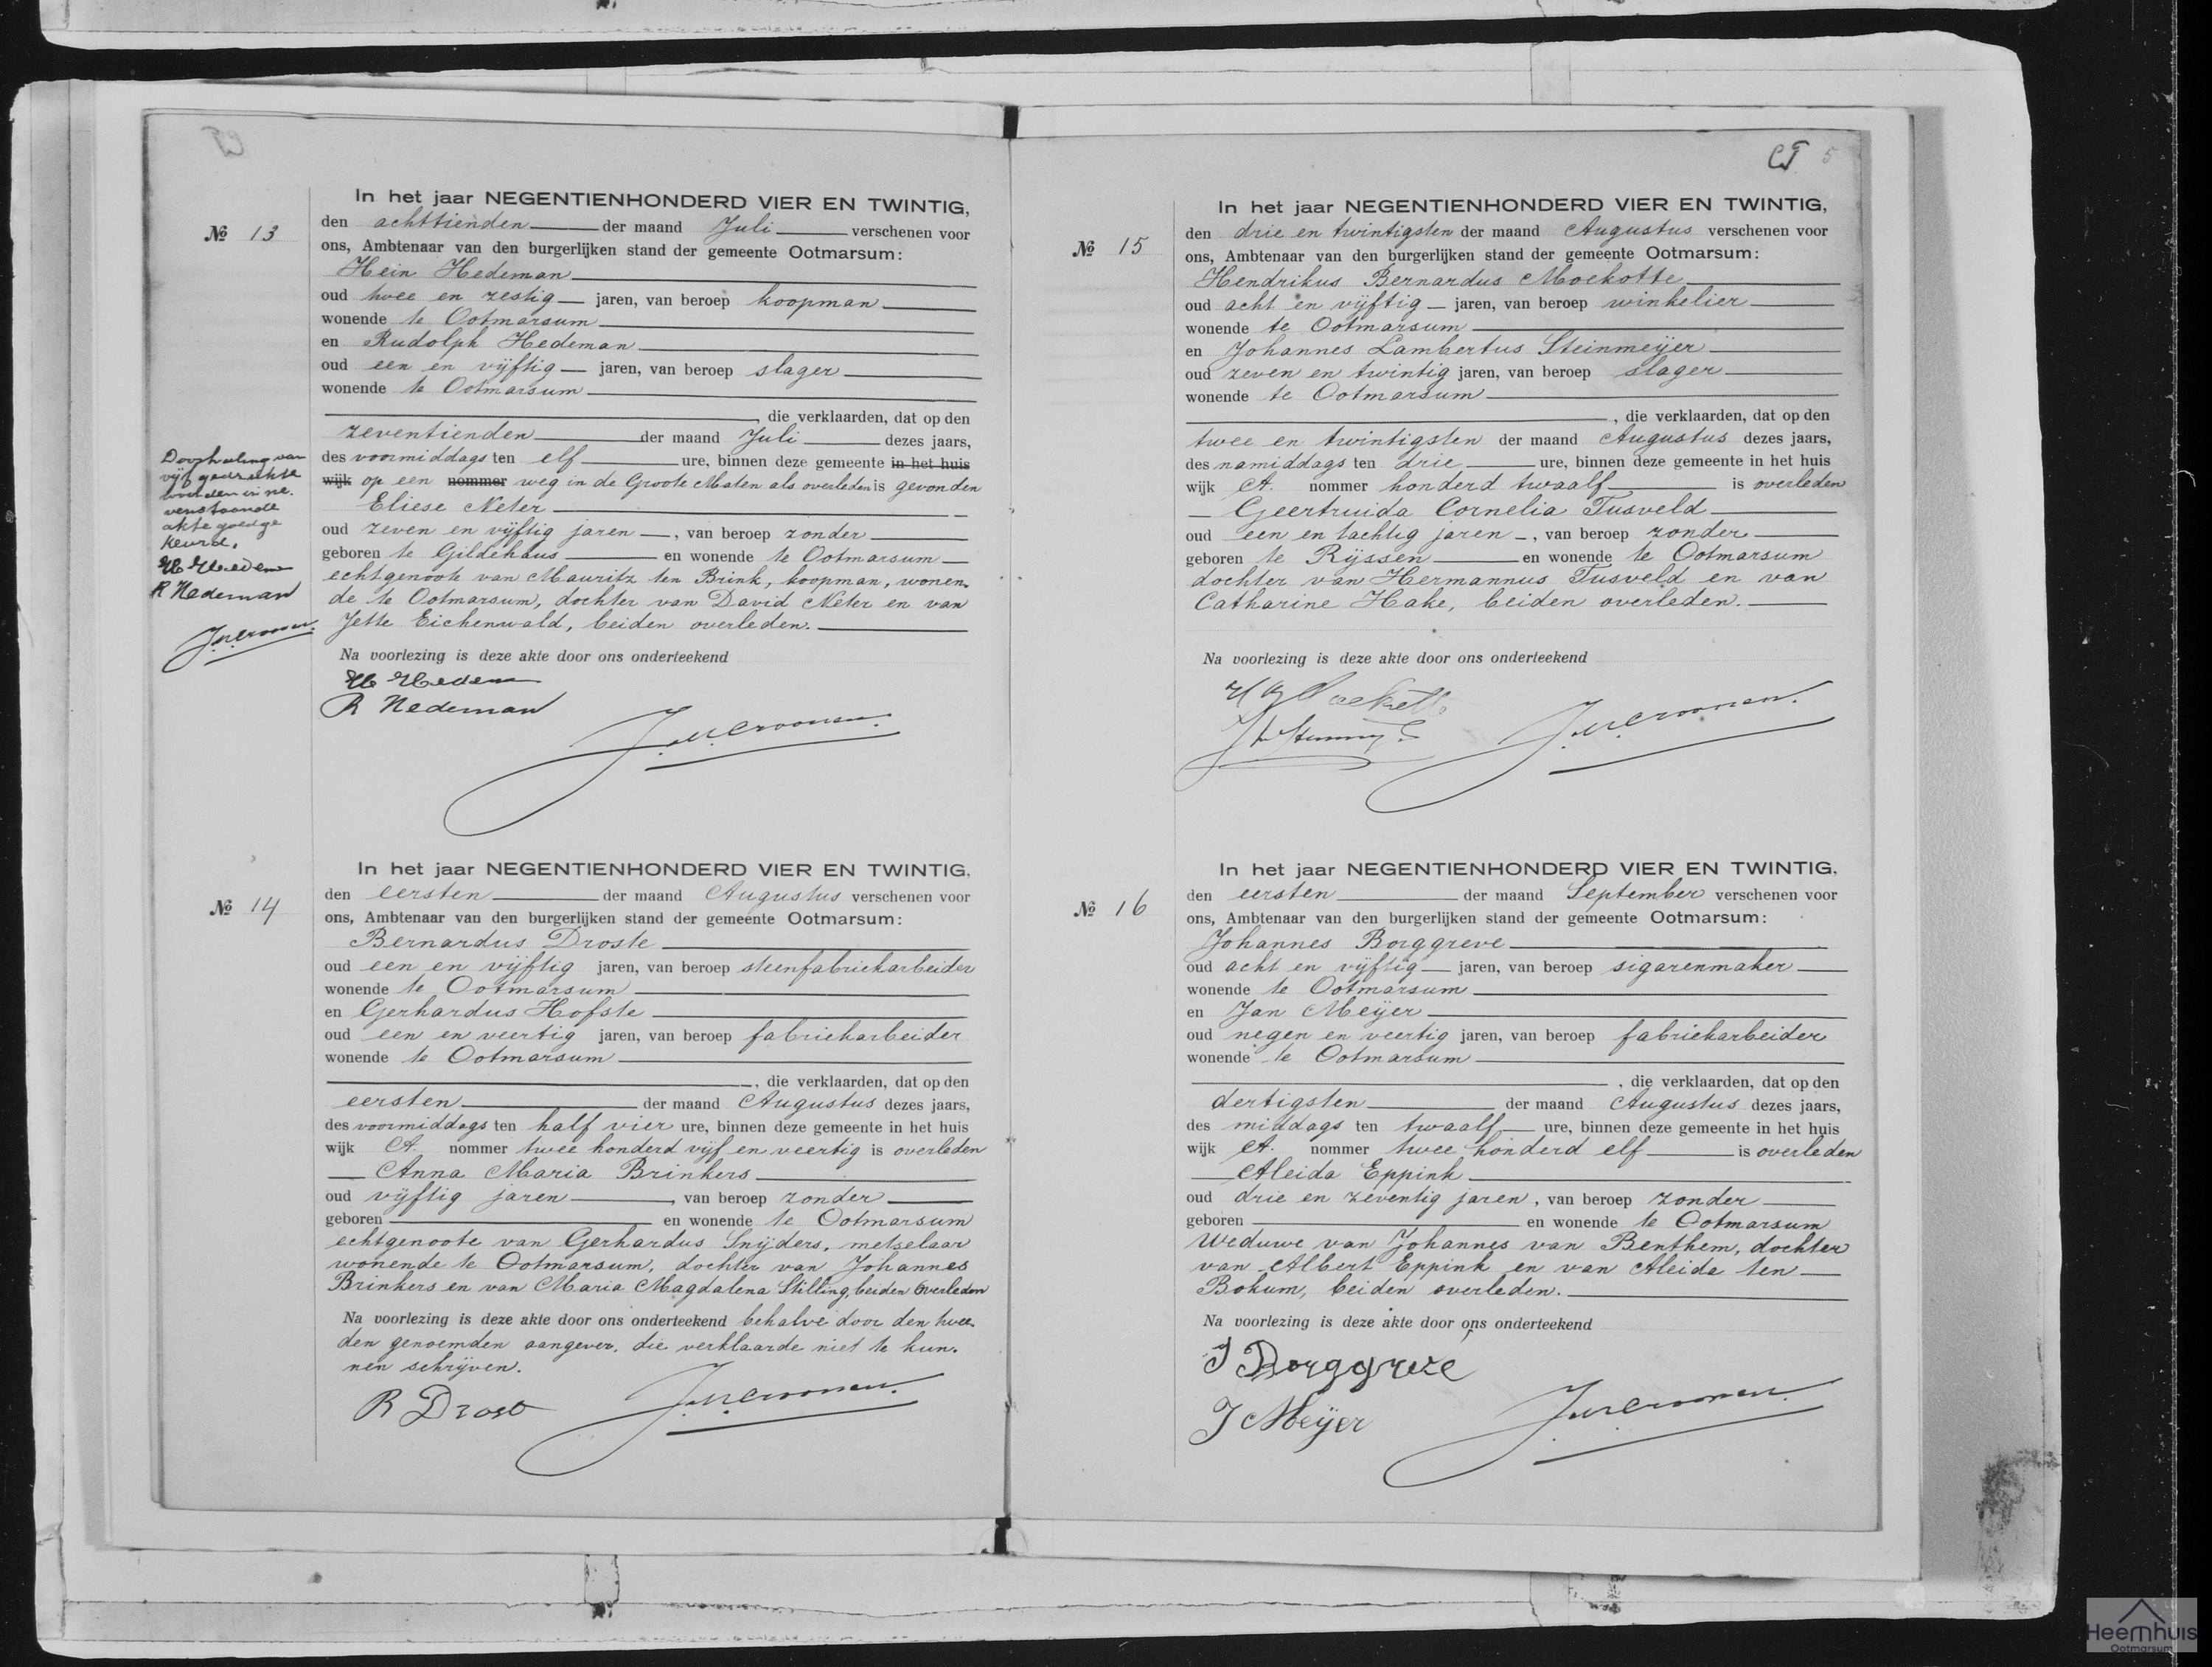 In het jaar NEGENTIENHONDERD VIER EN TWINTIG,
№ 13
den achttienden der maand Juli verschenen voor
ons, Ambtenaar van den burgerlijken stand der gemeente Ootmarsum:
Hein Hedeman
oud twee en zestig jaren, van beroep koopman
wonende te Ootmarsum
en Rudolph Hedeman
oud een en vijftig jaren, van beroep slager
wonende te Ootmarsum
, die verklaarden, dat op den
zeventienden der maand Juli dezes jaars,
des voormiddags ten elf ure, binnen deze gemeente in het huis
wijk op een nommer weg in de Groote Maten als overleden is gevonden
Eliese Neter
oud zeven en vijftig jaren, van beroep zonder
geboren te Gildehaus en wonende te Ootmarsum
echtgenoote van Mauritz ten Brink, koopman, wonen-
de te Ootmarsum, dochter van David Neter en van
Jette Eichenwald, beiden overleden.
Na voorlezing is deze akte door ons onderteekend
H Hedeman
R Hedeman
Doorhaling van
vijf gedrukte
woorden in ne-
venstaande
akte goedge
keurd.
H Hedeman
R Hedeman
In het jaar NEGENTIENHONDERD VIER EN TWINTIG,
№ 14
den eersten der maand Augustus verschenen voor
ons, Ambtenaar van den burgerlijken stand der gemeente Ootmarsum:
Bernardus Droste
oud een en vijftig jaren, van beroep steenfabriekarbeider
wonende te Ootmarsum
en Gerhardus Hofste
oud een en veertig jaren, van beroep fabriekarbeider
wonende te Ootmarsum
, die verklaarden, dat op den
eersten der maand Augustus dezes jaars,
des voormiddags ten half vier ure, binnen deze gemeente in het huis
wijk A. nommer twee honderd vijf en veertig is overleden
Anna Maria Brinkers
oud vijftig jaren, van beroep zonder
geboren en wonende te Ootmarsum
echtgenoote van Gerhardus Snijders, metselaar
wonende te Ootmarsum, dochter van Johannes
Brinkers en van Maria Magdalena Stilling, beiden overleden
Na voorlezing is deze akte door ons onderteekend behalve door den twee-
den genoemden aangever, die verklaarde niet te kun-
nen schrijven.
B Drost
CT 5
In het jaar NEGENTIENHONDERD VIER EN TWINTIG,
№ 15
den drie en twintigsten der maand Augustus verschenen voor
ons, Ambtenaar van den burgerlijken stand der gemeente Ootmarsum:
Hendrikus Bernardus Moekotte
oud acht en vijftig jaren, van beroep winkelier
wonende te Ootmarsum
en Johannes Lambertus Steinmeijer
oud zeven en twintig jaren, van beroep slager
wonende te Ootmarsum
, die verklaarden, dat op den
twee en twintigsten der maand Augustus dezes jaars,
des namiddags ten drie ure, binnen deze gemeente in het huis
wijk A. nommer honderd twaalf is overleden
Geertruida Cornelia Tusveld
oud een en tachtig jaren, van beroep zonder
geboren te Rijssen en wonende te Ootmarsum
dochter van Hermannus Tusveld en van
Catharine Hake, beiden overleden.
Na voorlezing is deze akte door ons onderteekend
In het jaar NEGENTIENHONDERD VIER EN TWINTIG,
№ 16
den eersten der maand September verschenen voor
ons, Ambtenaar van den burgerlijken stand der gemeente Ootmarsum:
Johannes Borggreve
oud acht en vijftig jaren, van beroep sigarenmaker
wonende te Ootmarsum
en Jan Meijer
oud negen en veertig jaren, van beroep fabriekarbeider
wonende te Ootmarsum
, die verklaarden, dat op den
dertigsten der maand Augustus dezes jaars,
des middags ten twaalf ure, binnen deze gemeente in het huis
wijk A. nommer twee honderd elf is overleden
Aleida Eppink
oud drie en zeventig jaren, van beroep zonder
geboren en wonende te Ootmarsum
Weduwe van Johannes van Benthem, dochter
van Albert Eppink en van Aleida ten
Bokum, beiden overleden.
Na voorlezing is deze akte door ons onderteekend
J Borggreve
J Meijer
Heemhuis
Ootmarsum